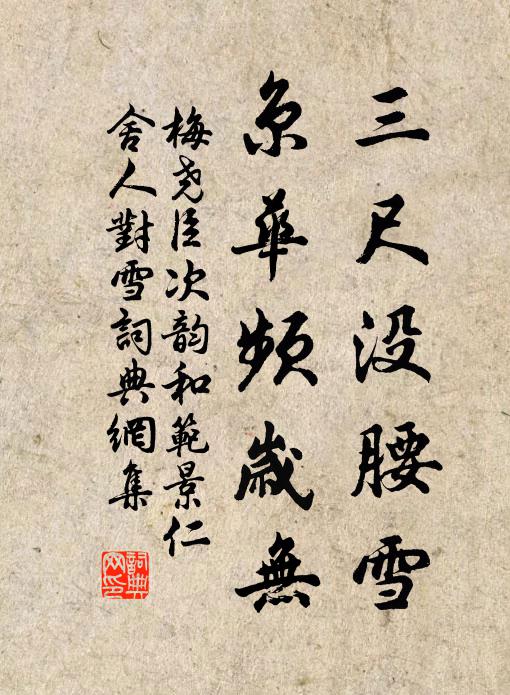 三尺没腰雪
京華頻歲無
梅尧臣次韵和範景仁
舍人對雪詞典網集
詞典
网印